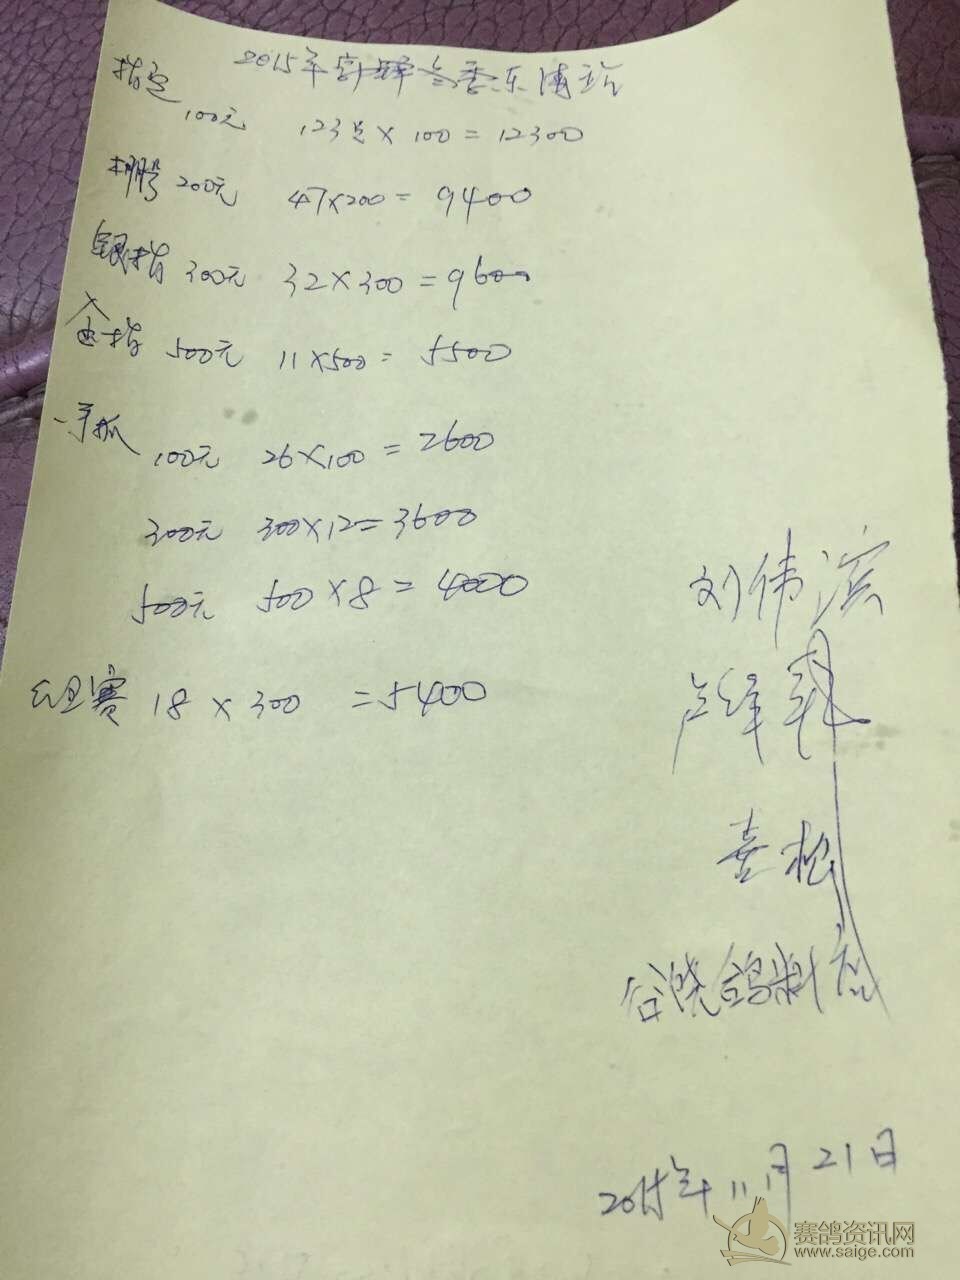 2015年冬季东博站
指定 100元 123只×100=12300
棚鸽 200元 47×200=9400
银指 300元 32×300=9600
金指 500元 11×500=5500
一羊狐 100元 26×100=2600
300元 300×12=3600
500元 500×8=4000
组赛 18×300=5400
刘伟滨
喜松
谷晓鸽料店
2015年11月21日
赛鸽资讯网
www.saige.com